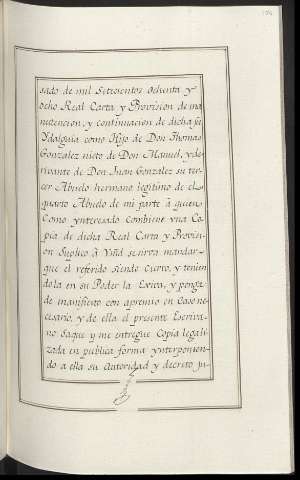 sado de mil Setecientos ochenta y
ocho Real Carta y Provision de ma
nutencion, y continuacion de dicha su
Ydalguia como Hijo de Don Thomas
Gonzalez nieto de Don Manuel, y de-
rivante de Don Juan Gonzalez su ter-
cer Abuelo hermano legitimo de el
quarto Abuelo de mi parte à quien
Como ynteresado combiene vna Co-
pia de dicha Real Carta y Provisi-
on Suplico à Vmd se sirva mandar
que el referido siendo Cierto, y tenien
dola en su Poder la Exiva, y ponga
de manifiesto con apremio en Caso ne-
cesario, y de ella el presente Escriva-
no Saque y me entregue Copia legali-
zada en publica forma ynterponien-
do a ella su Autoridad y decreto ju-